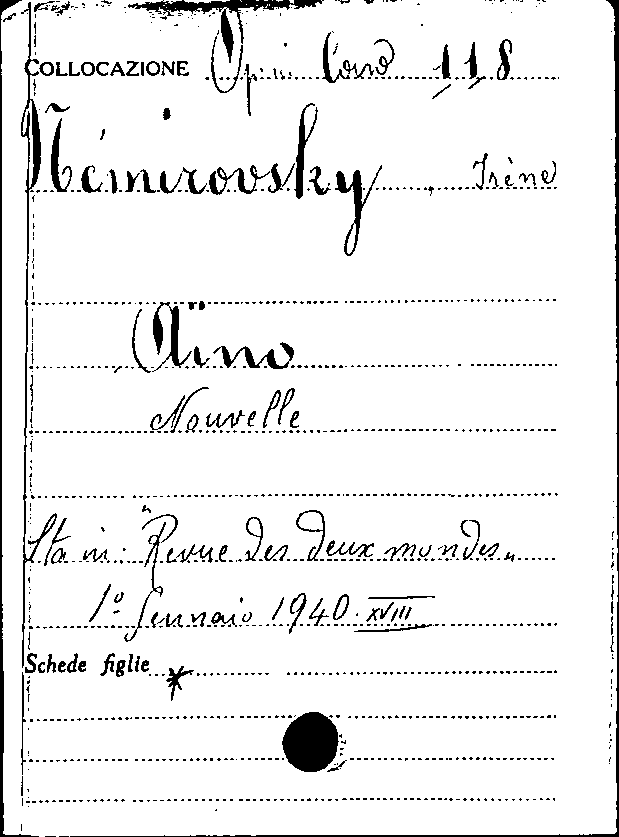 COLLOCAZIONE Op. in. Cons 118
Némirovsky, Irène
Aïno
Nouvelle
Sta in: "Revue des deux mondes"
1º Gennaio 1940. XVIII
Schede figlie *